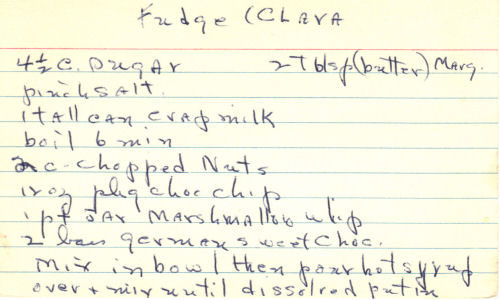 Fudge (CLARA
4½ C. Sugar 2 Tblsp (butter) Marg.
pinch salt.
1 tall can evap milk
boil 6 min
2 c. chopped Nuts
12 oz pkg choc chip
1 pt JAR Marshmallow whip
2 bars german sweet choc.
Mix in bowl then pour hot syrup
over + mix until dissolved put in